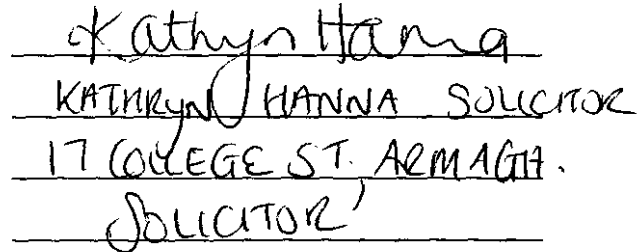 Kathryn Hanna
KATHRYN HANNA SOLICITOR
17 COLLEGE ST, ARMAGH.
SOLICITOR